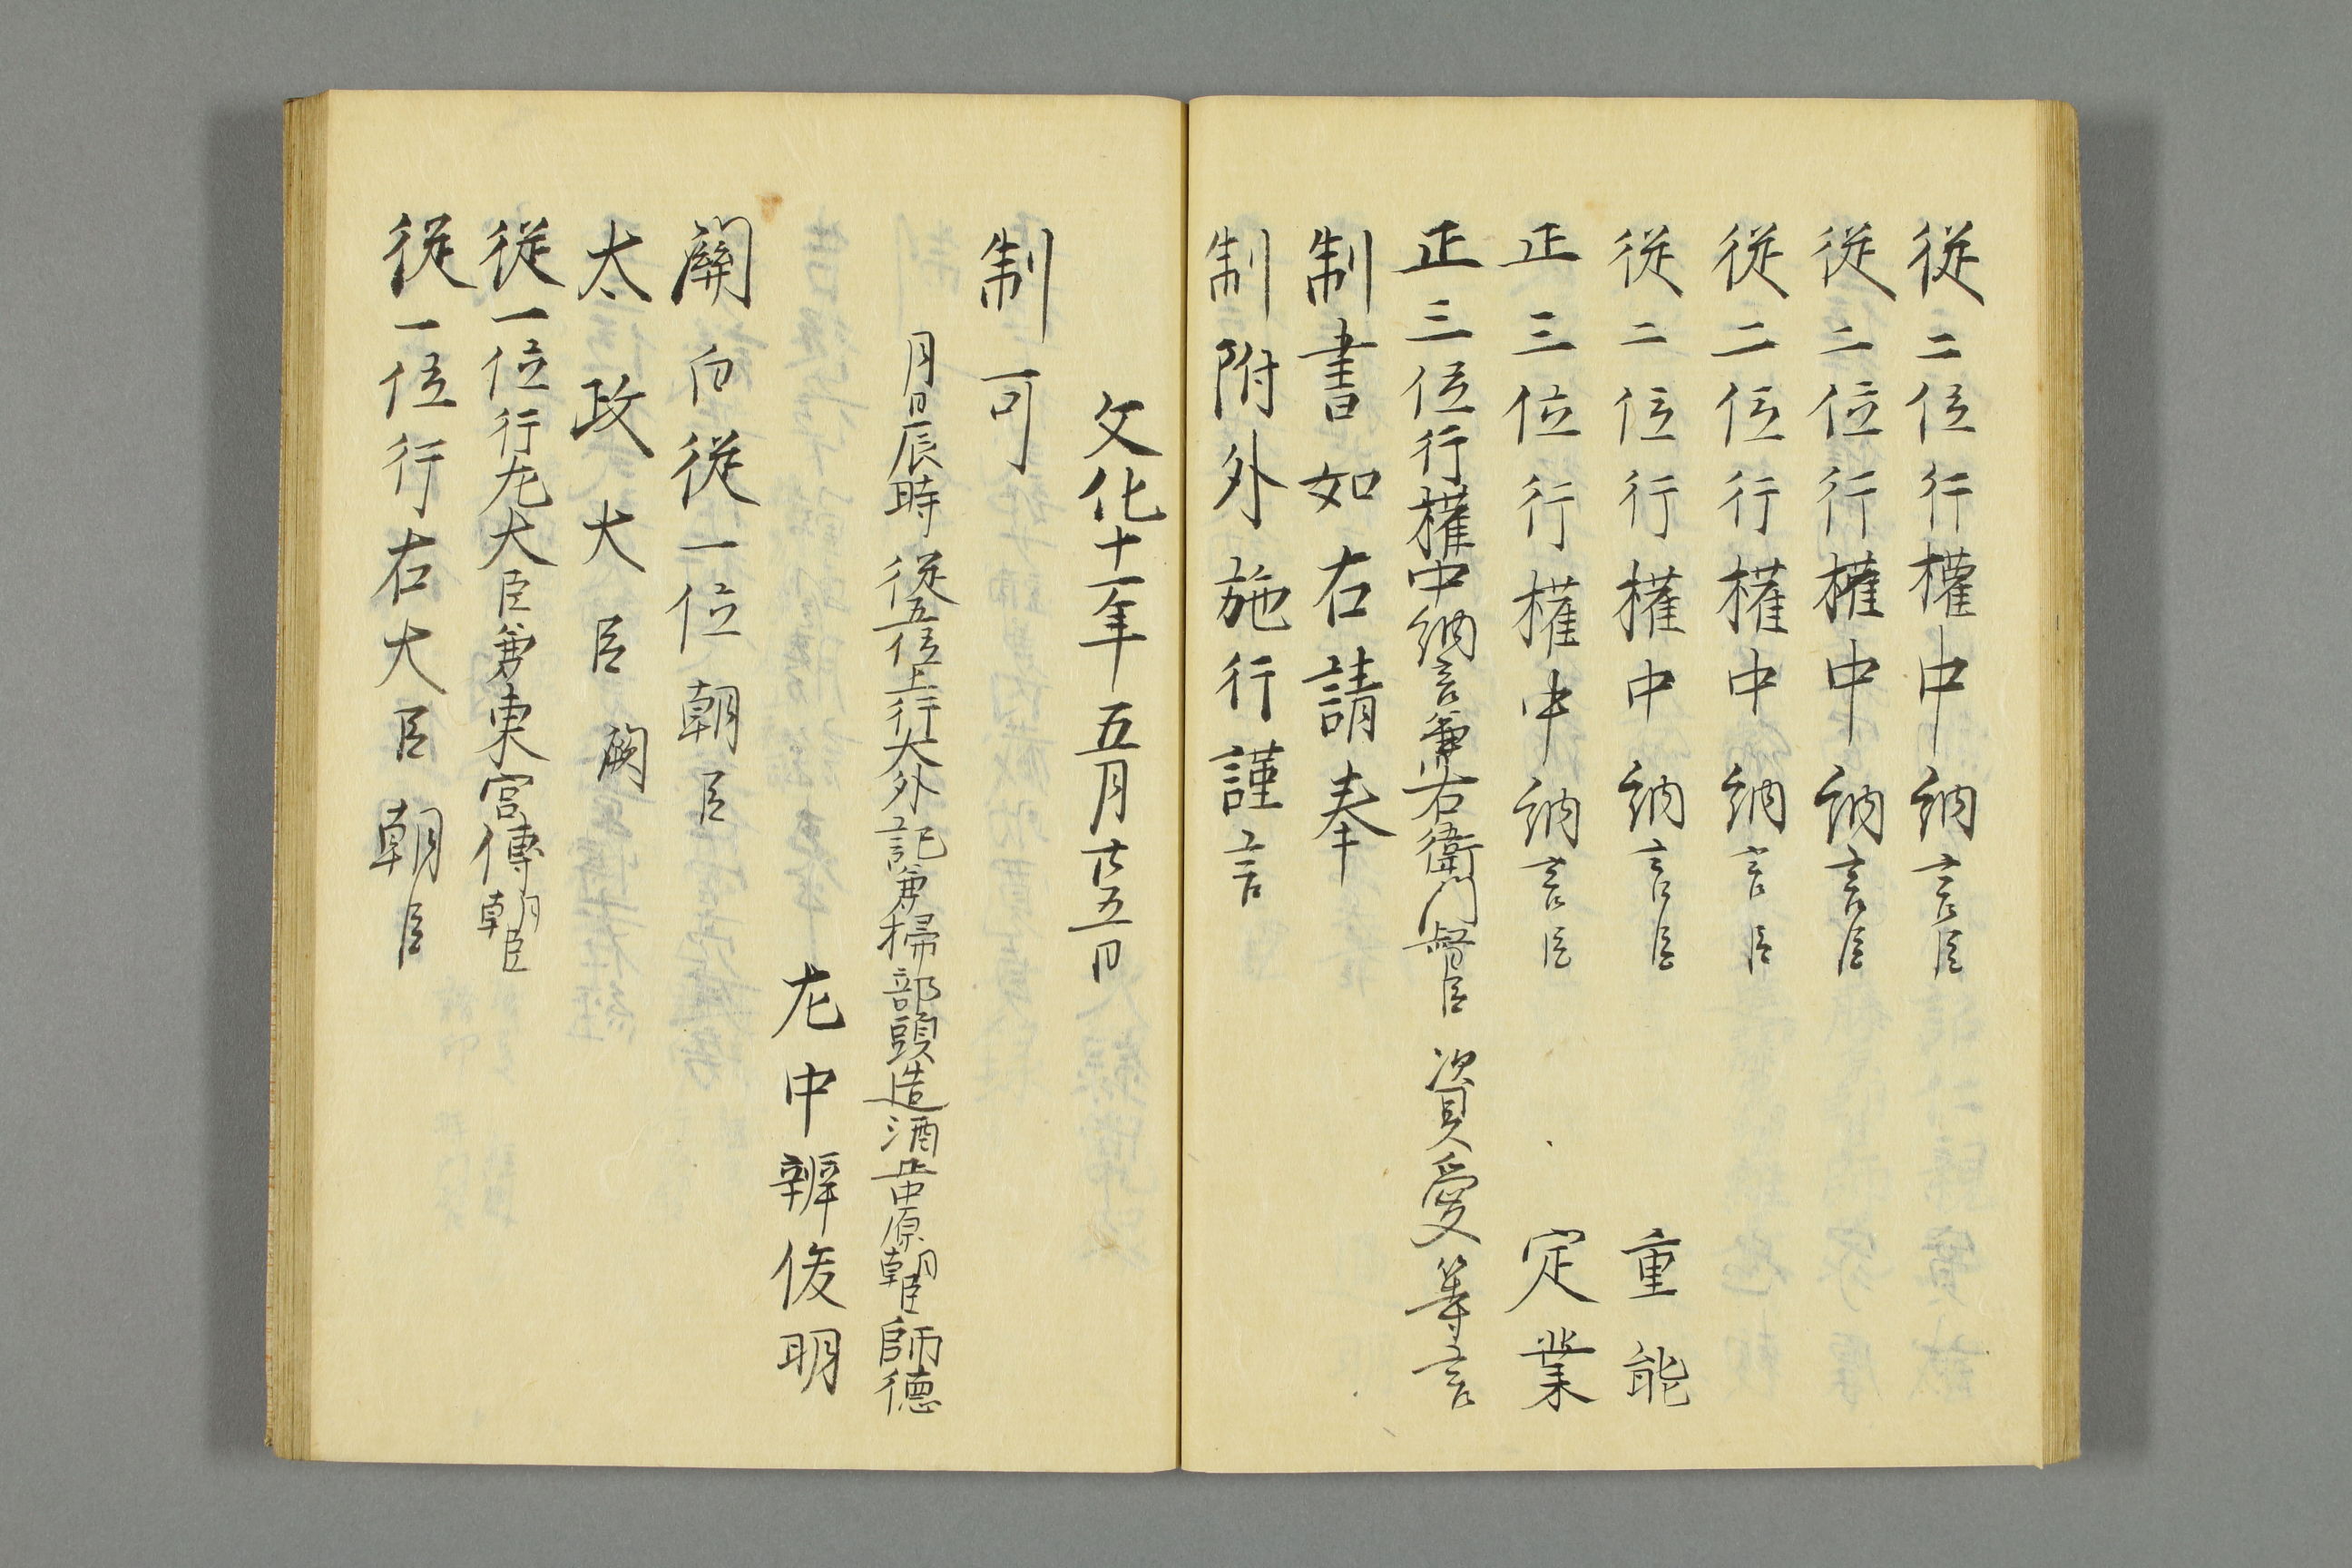 従二位行權中納言臣
従二位行權中納言臣
従二位行權中納言臣
従二位行權中納言臣 重能
正三位行權中納言臣 定業
正三位行權中納言兼右衛門督臣 資愛等言
制書如右請奉
制附外施行謹言
文化十一年五月廿五日
制可
月日辰時 従五位上行大外記兼掃部頭造酒正中原朝臣師徳
左中辨俊明
關白従一位朝臣
太政大臣 闕
従一位行左大臣兼東宮傅朝臣
従一位行右大臣朝臣